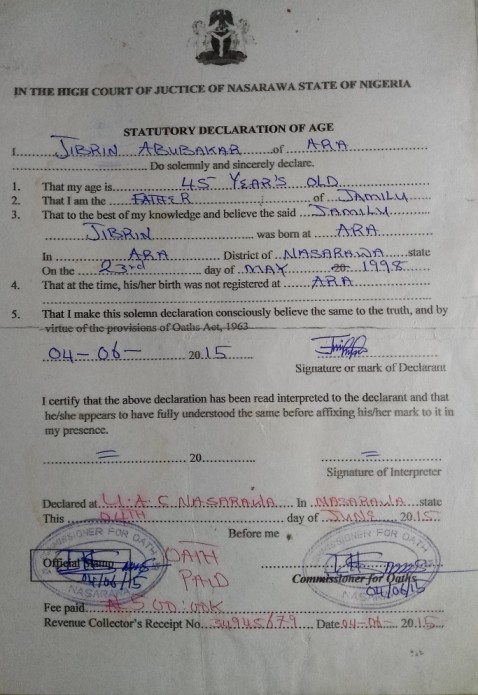 IN THE HIGH COURT OF JUCTICE OF NASARAWA STATE OF NIGERIA
STATUTORY DECLARATION OF AGE
I JIBRIN ABUBAKAR of ARA
Do solemnly and sincerely declare.
1. That my age is 45 YEAR'S OLD
2. That I am the FATHER of JAMILU
3. That to the best of my knowledge and believe the said JAMILU
JIBRIN was born at ARA
In ARA District of NASARAWA state
On the 23rd day of MAY 20 1998
4. That at the time, his/her birth was not registered at ARA
5. That I make this solemn declaration consciously believe the same to the truth, and by
virtue of the provisions of Oaths Act, 1963
04-06- 20.15
Signature or mark of Declarant
I certify that the above declaration has been read interpreted to the declarant and that
he/she appears to have fully understood the same before affixing his/her mark to it in
my presence.
= 20 =
Signature of Interpreter
Declared at U.A.C NASARAWA In NASARAWA state
This 04TH day of JUNE 2015
Before me
COMMISSIONER FOR OATH
Official Stamp
04/06/15
NASARAWA
OATH
PAID
COMMISSIONER FOR OATH
Commissioner for Oaths
04/06/15
Fee paid
Revenue Collector's Receipt No. 34945679 Date 04-06- 2015